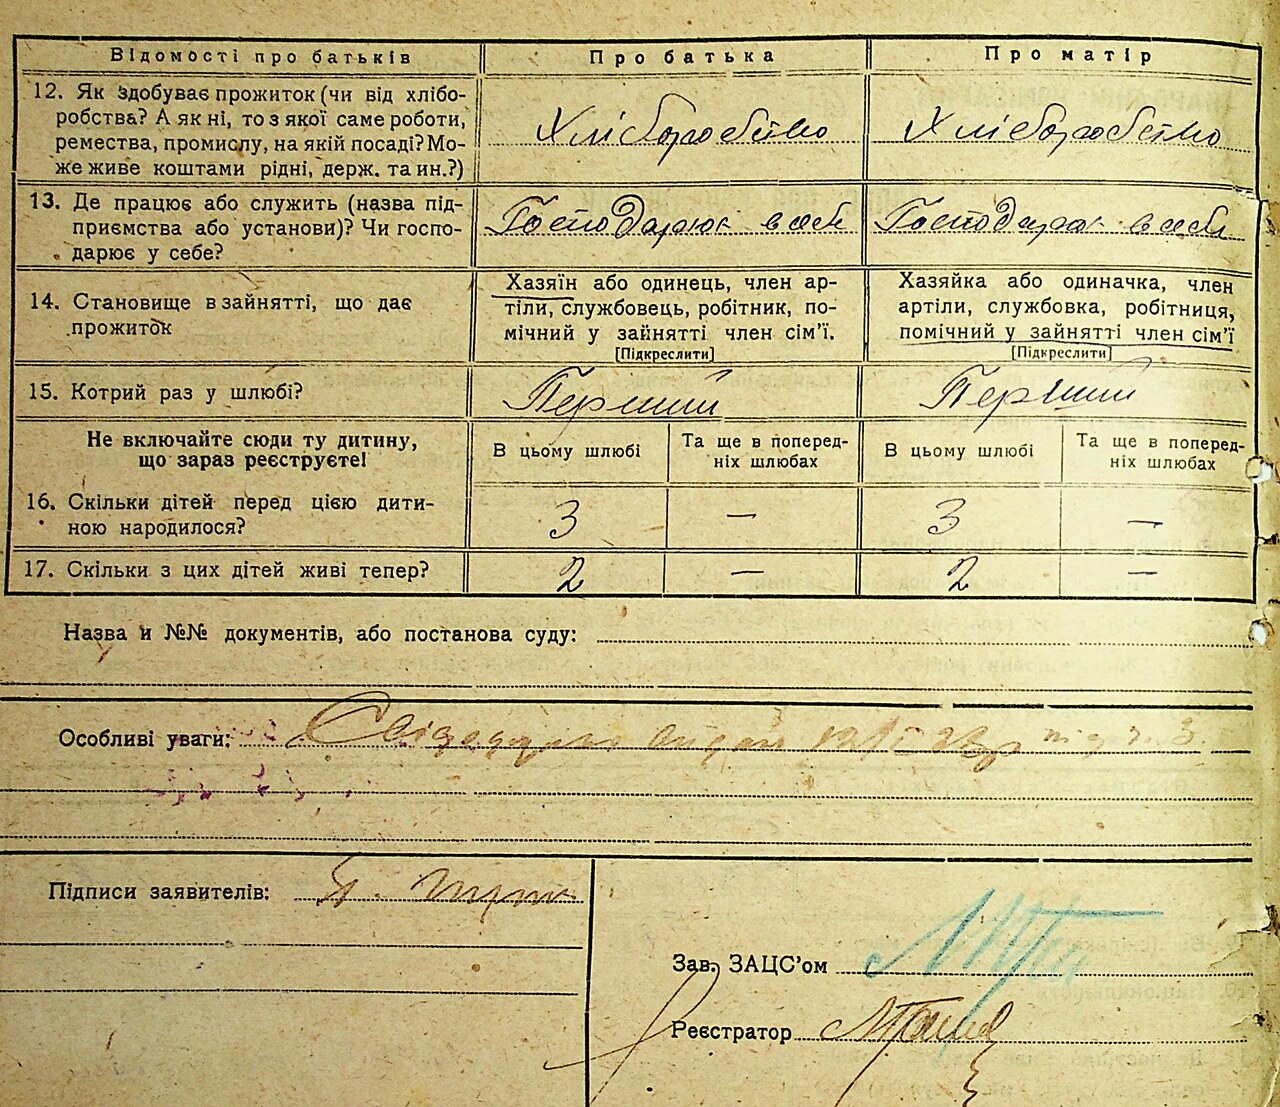 Відомості про батьків Про батька Про матір
12. Як здобуває прожиток (чи від хлібо-
робства? А як ні, то з якої саме роботи,
ремества, промислу, на якій посаді? Мо-
же живе коштами рідні, держ. та ин.?)
Хліборобство Хліборобство
13. Де працює або служить (назва під-
приємства або установи)? Чи госпо-
дарює у себе?
Господарює в себе Господарює в себе
14. Становище в зайнятті, що дає
прожиток
Хазяїн або одинець, член ар-
тіли, службовець, робітник, по-
мічний у зайнятті член сім'ї.
[Підкреслити]
Хазяйка або одиначка, член
артіли, службовка, робітниця,
помічний у зайнятті член сім'ї
[Підкреслити]
15. Котрий раз у шлюбі? Перший Перший
Не включайте сюди ту дитину,
що зараз реєструєте!
В цьому шлюбі
Та ще в поперед-
ніх шлюбах
В цьому шлюбі
Та ще в поперед-
ніх шлюбах
16. Скільки дітей перед цією дити-
ною народилося?
3 — 3 —
17. Скільки з цих дітей живі тепер? 2 — 2 —
Назва и №№ документів, або постанова суду:
Особливі уваги: під ч. 3
Підписи заявителів:
Зав. ЗАЦС'ом
Реєстратор